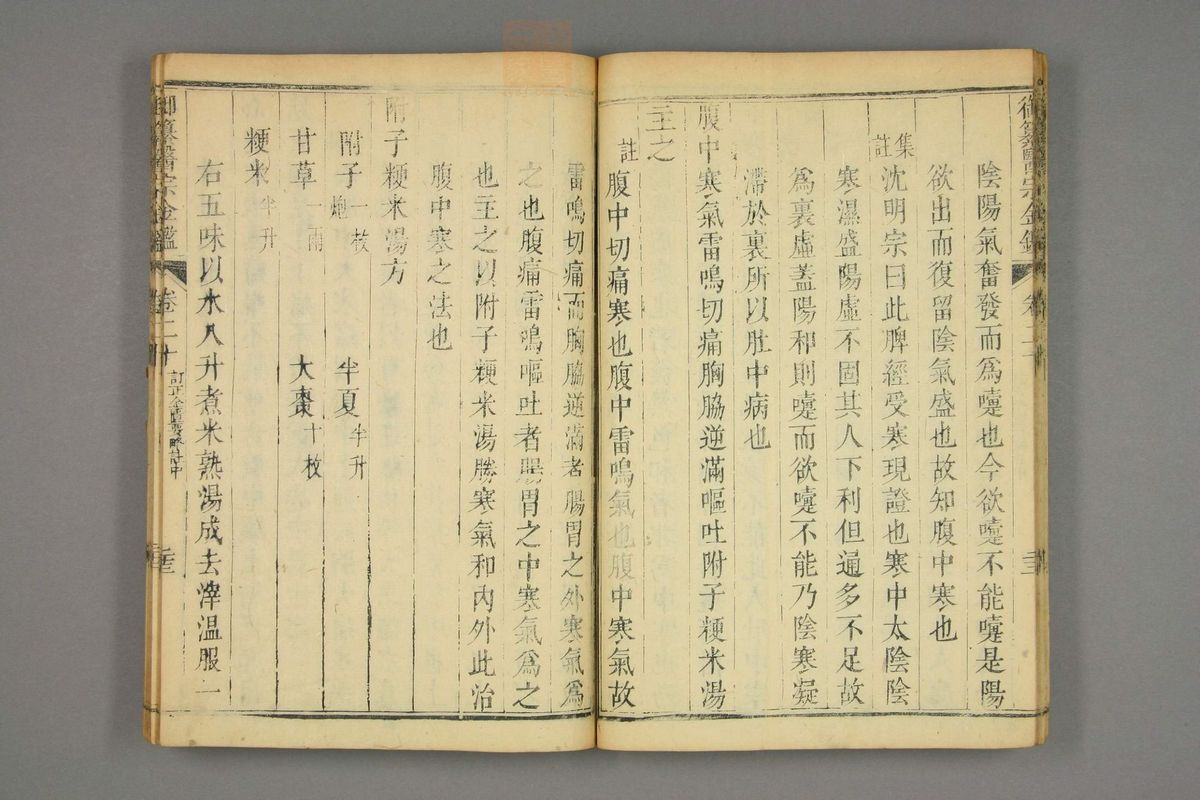 御纂醫宗金鑑
卷二十
陰陽氣奮發而爲嚏也今欲嚏不能嚏是陽
欲出而復留陰氣盛也故知腹中寒也
集註
沈明宗曰此脾經受寒現證也寒中太陰陰
寒濕盛陽虛不固其人下利但通多不足故
爲裏虛蓋陽和則嚏而欲嚏不能乃陰寒凝
滯於裏所以肚中病也
腹中寒氣雷鳴切痛胸脇逆滿嘔吐附子粳米湯
主之
註
腹中切痛寒也腹中雷鳴氣也腹中寒氣故
雷鳴切痛而胸脇逆滿者腸胃之外寒氣爲
之也腹痛雷鳴嘔吐者腸胃之中寒氣爲之
也主之以附子粳米湯勝寒氣和內外此治
腹中寒之法也
附子粳米湯方
附子一枚炮 半夏半升
甘草一兩 大棗十枚
粳米半升
右五味以水八升煮米熟湯成去滓溫服一
御纂醫宗金鑑
卷二十
訂正金匱要略註中